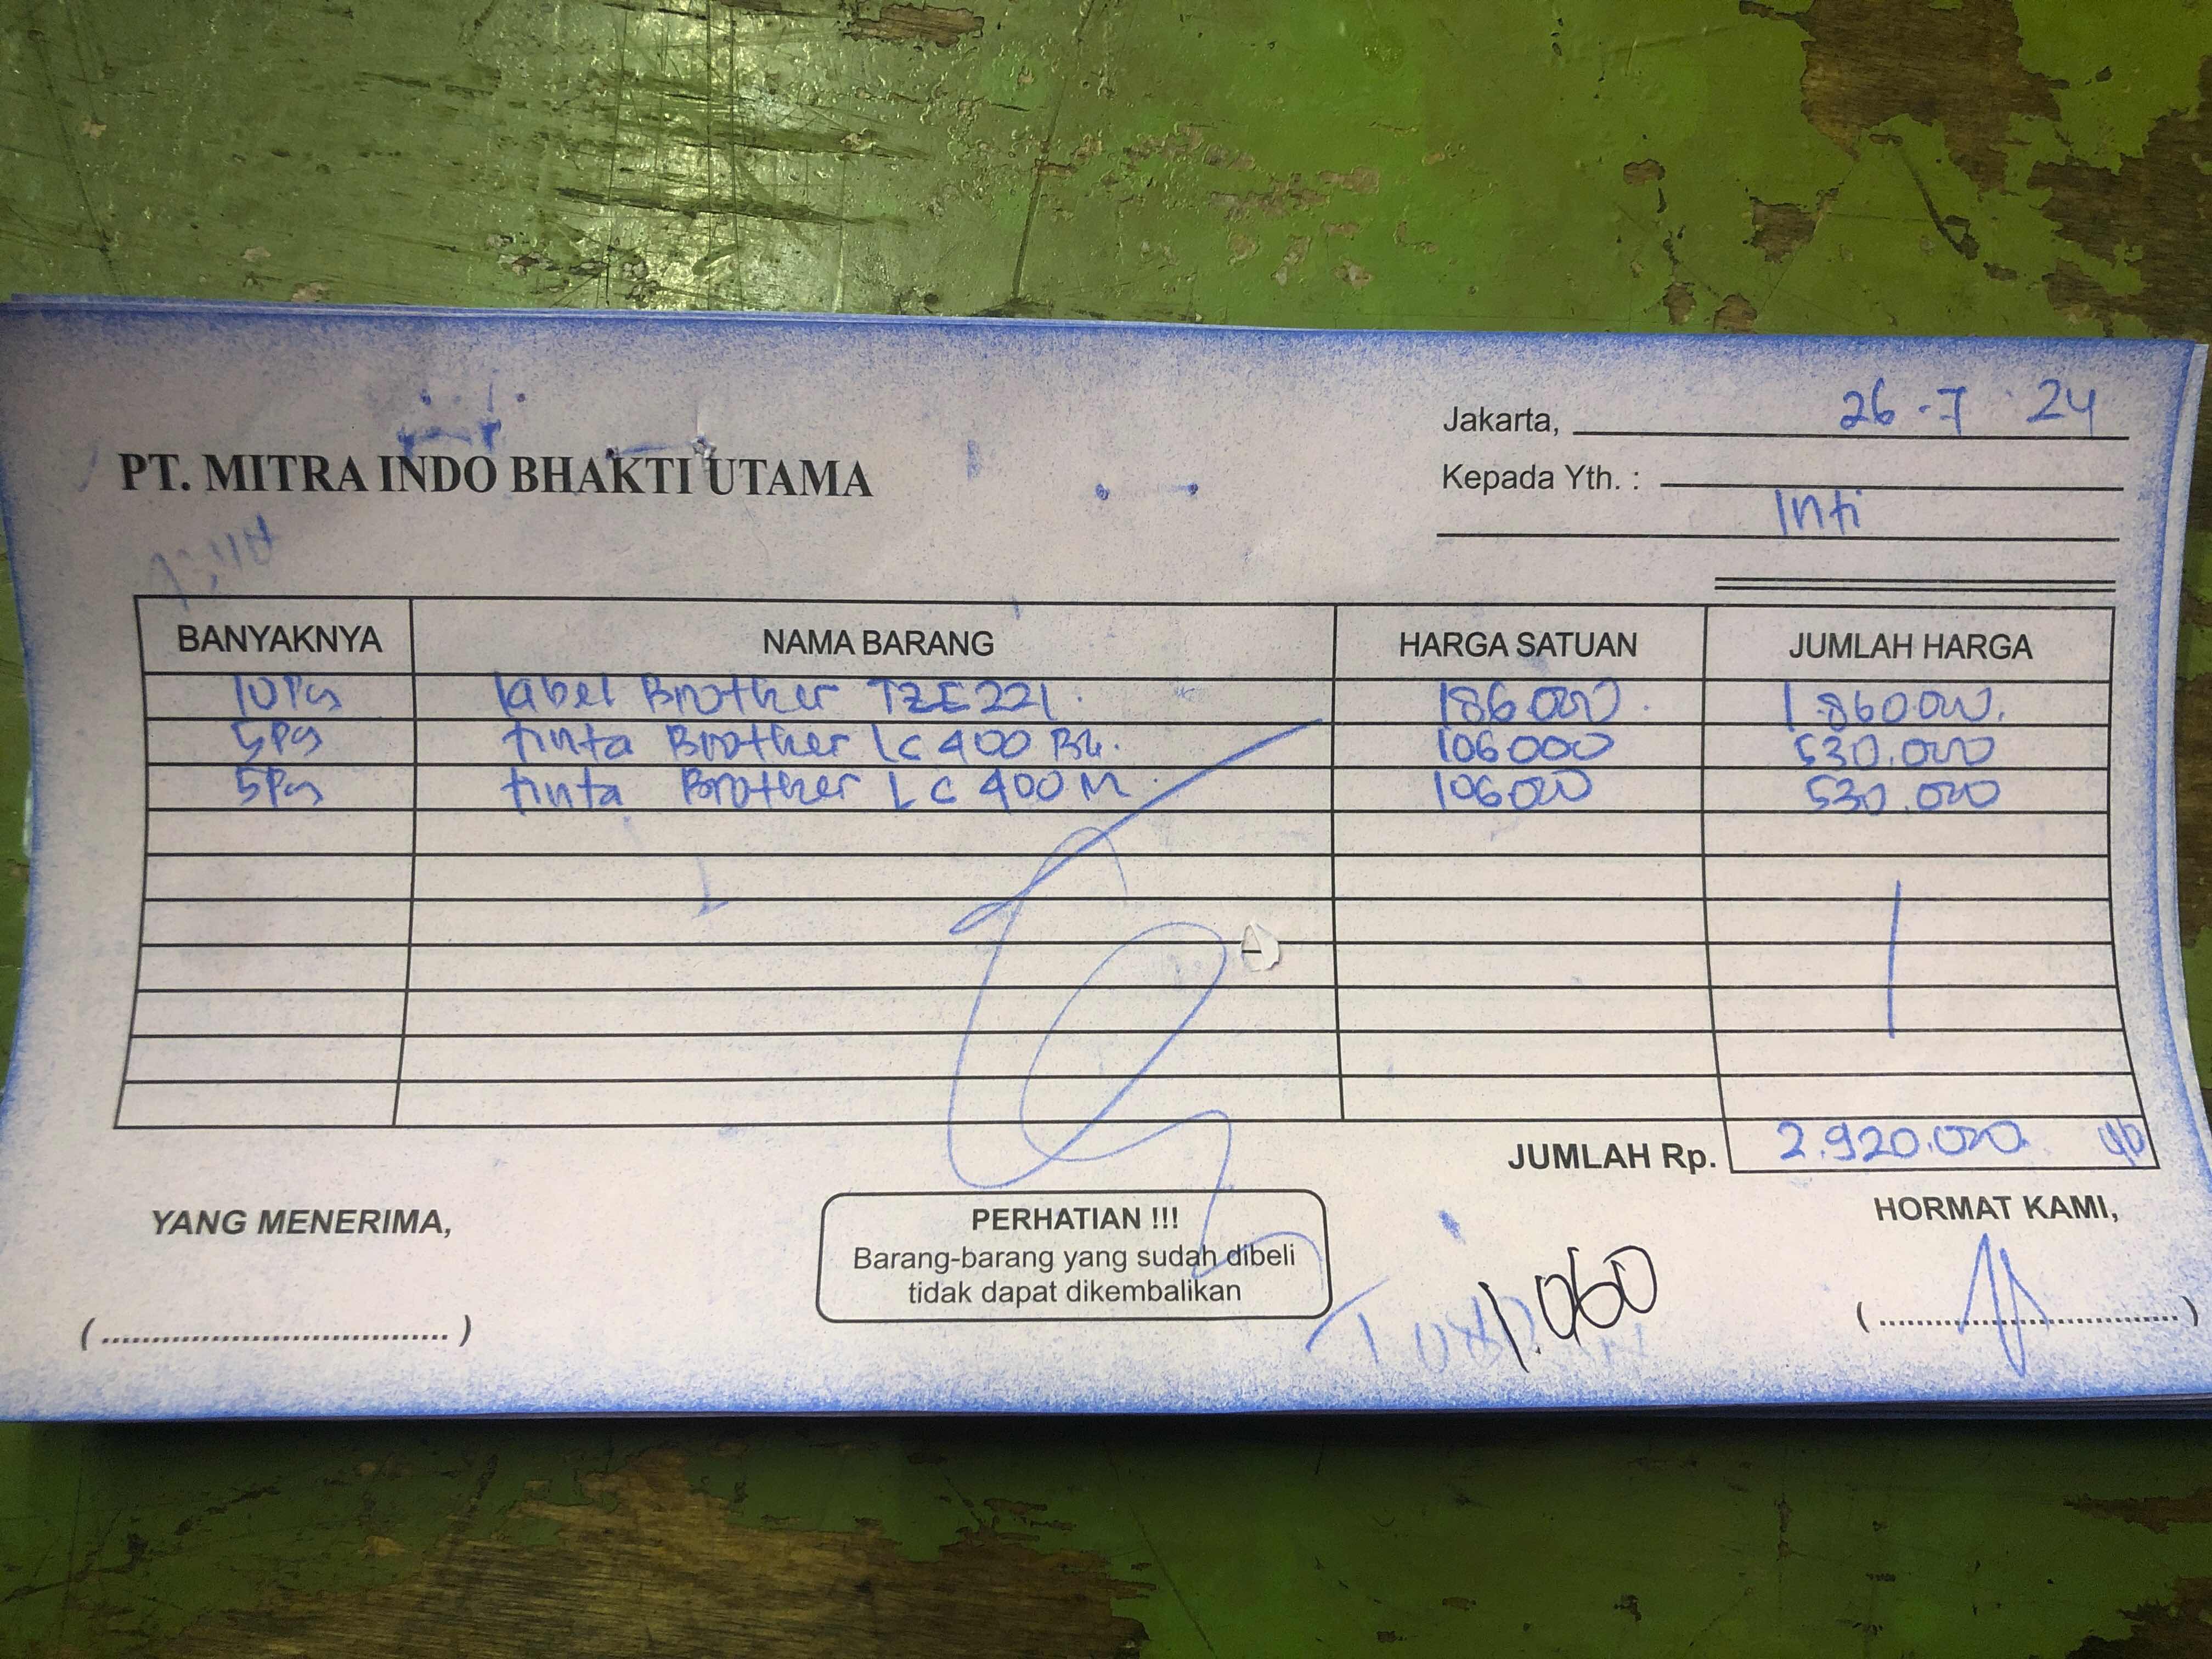 Jakarta, 26-7 24
PT. MITRA INDO BHAKTI UTAMA
Kepada Yth. :
Inti
BANYAKNYA NAMA BARANG HARGA SATUAN JUMLAH HARGA
10 Pcs label Brother TZE 221. 186.000. 1.860.000.
5 Pcs tinta Brother LC 400 Bk. 106000 530.000
5 Pcs tinta Brother LC 400 M 106000 530.000
JUMLAH Rp. 2.920.000
YANG MENERIMA,
PERHATIAN !!!
Barang-barang yang sudah dibeli
tidak dapat dikembalikan
HORMAT KAMI,
1.060
(..................................) (..................................)